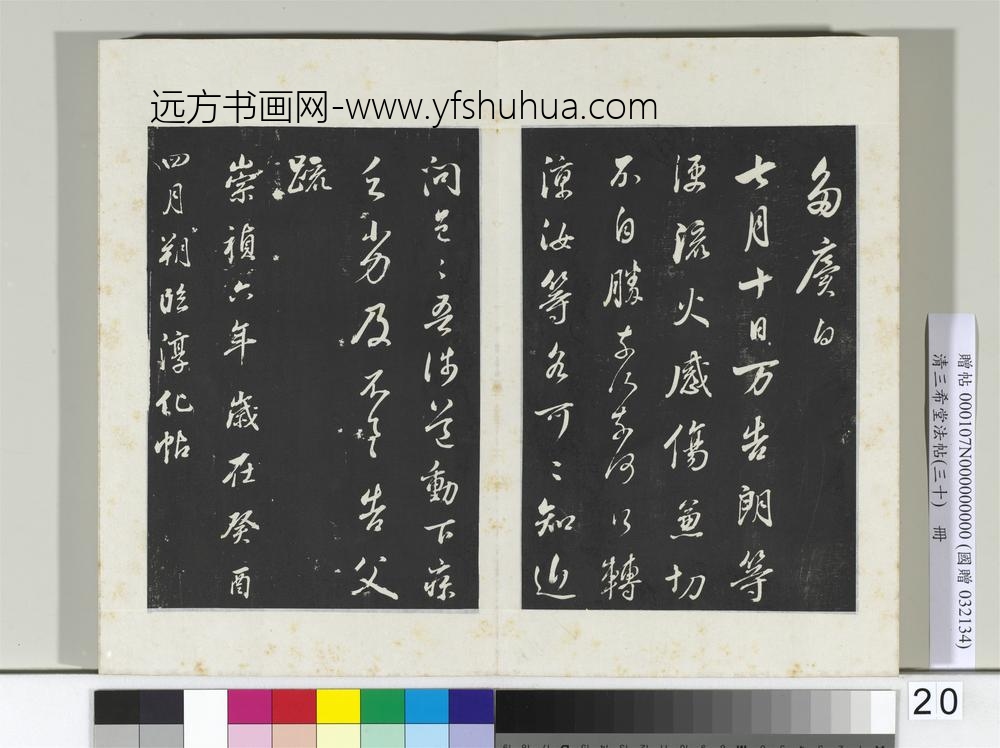 远方书画网-www.yfshuhua.com
廙白
七月十日万告朗等
便流火感傷兼切
不自勝奈何奈何以轉
涼汝等各可〻知近
問邑〻吾涉道動下疾
乏劣及不具告父
疏
崇禎六年歲在癸酉
四月朔臨淳化帖
贈帖 000107N000000000 (國贈 032134)
清三希堂法帖(三十) 冊
20